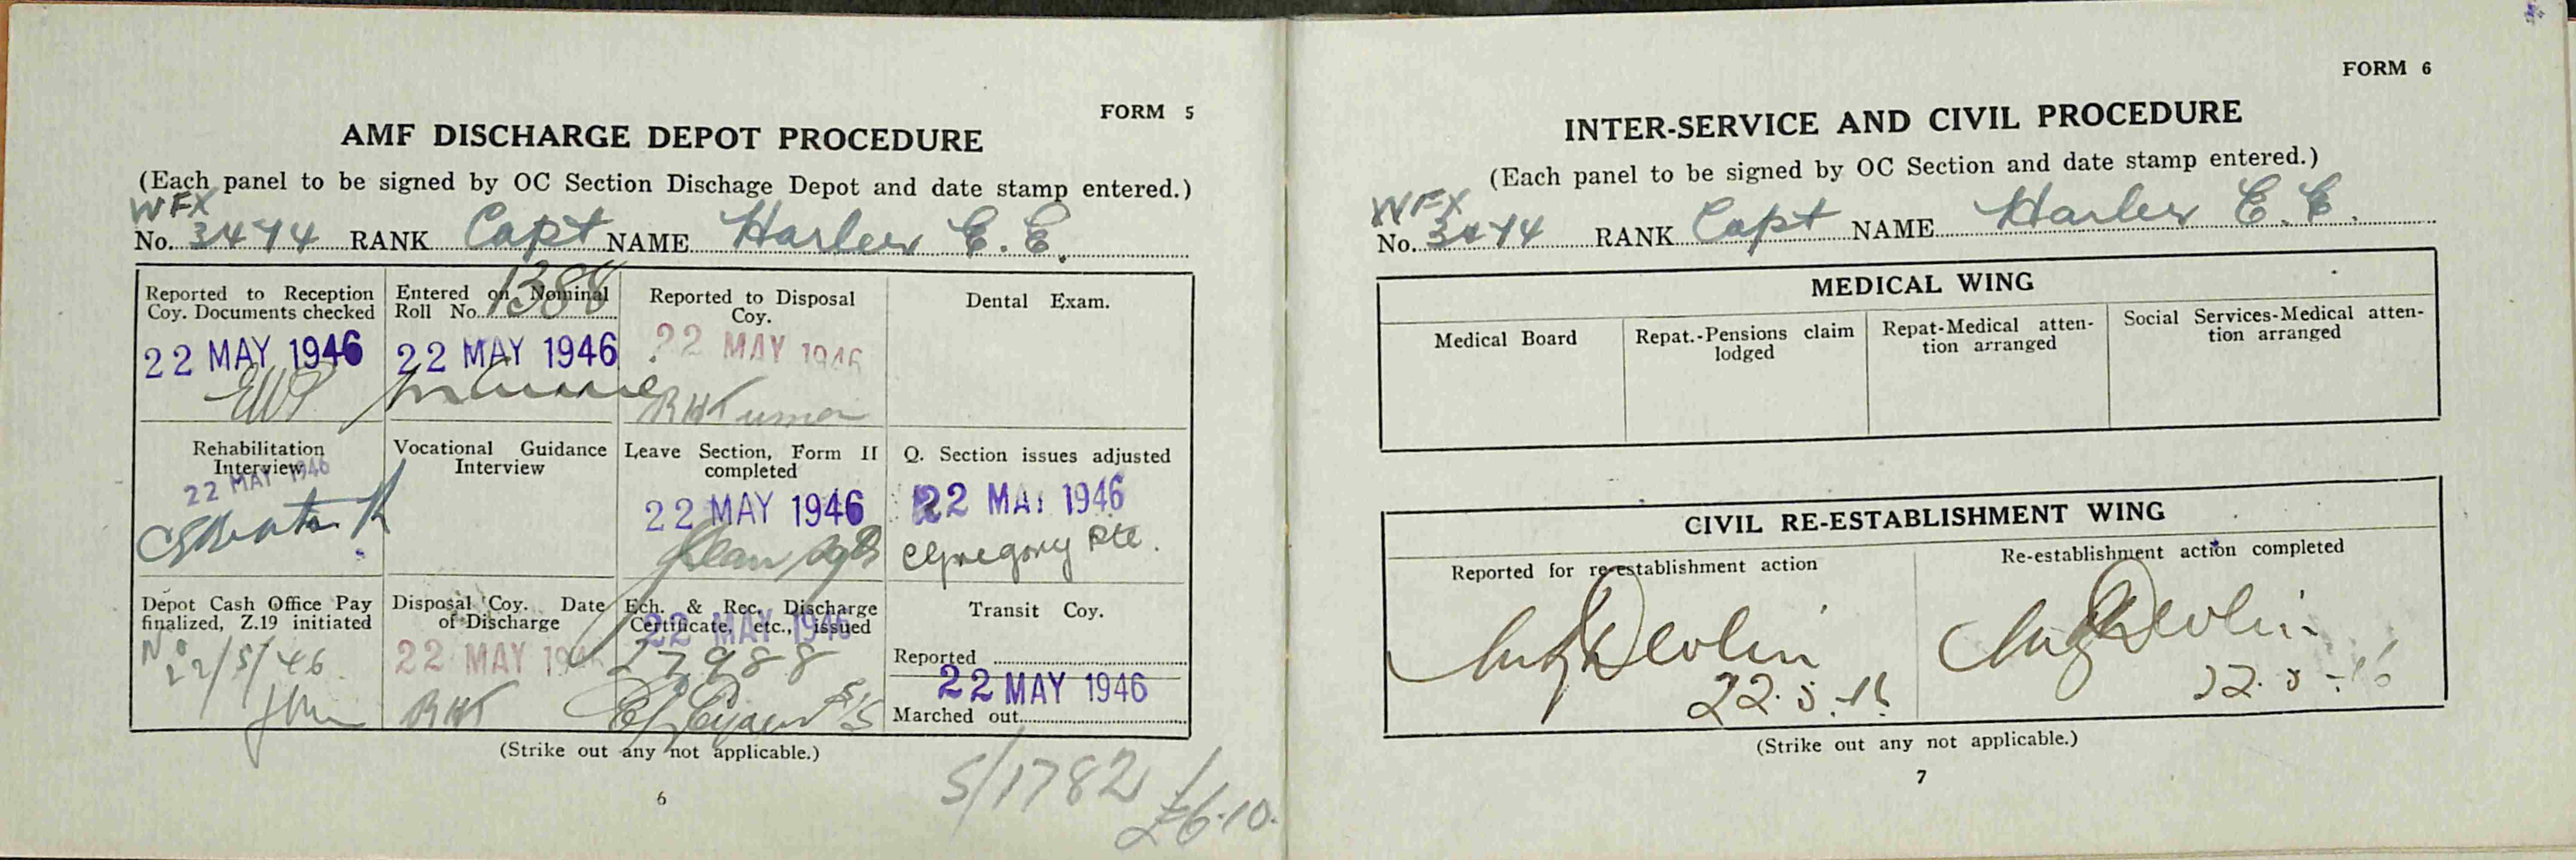 FORM 5
AMF DISCHARGE DEPOT PROCEDURE
(Each panel to be signed by OC Section Dischage Depot and date stamp entered.)
WFX
No. 3474 RANK Capt NAME Harler E. E.
Reported to Reception
Coy. Documents checked
22 MAY 1946
Entered on Nominal
Roll No. 1388
22 MAY 1946
Reported to Disposal
Coy.
22 MAY 1946
Dental Exam.
Rehabilitation
Interview
22 MAY 1946
Vocational Guidance
Interview
Leave Section, Form II
completed
22 MAY 1946
Q. Section issues adjusted
22 MAY 1946
CGregory Pte.
Depot Cash Office Pay
finalized, Z.19 initiated
22/5/46
Disposal Coy. Date
of Discharge
22 MAY 1946
RHT
Ech. & Rec. Discharge
Certificate, etc., issued
22 MAY 1946
27988
Transit Coy.
Reported
22 MAY 1946
Marched out
(Strike out any not applicable.)
5/1782
£6.10.
6
FORM 6
INTER-SERVICE AND CIVIL PROCEDURE
(Each panel to be signed by OC Section and date stamp entered.)
WFX
No. 3474 RANK Capt NAME Harler E. E.
MEDICAL WING
Medical Board
Repat.-Pensions claim
lodged
Repat-Medical atten-
tion arranged
Social Services-Medical atten-
tion arranged
CIVIL RE-ESTABLISHMENT WING
Reported for re-establishment action
Devlin
22.5.46
Re-establishment action completed
Devlin
22.5.46
(Strike out any not applicable.)
7